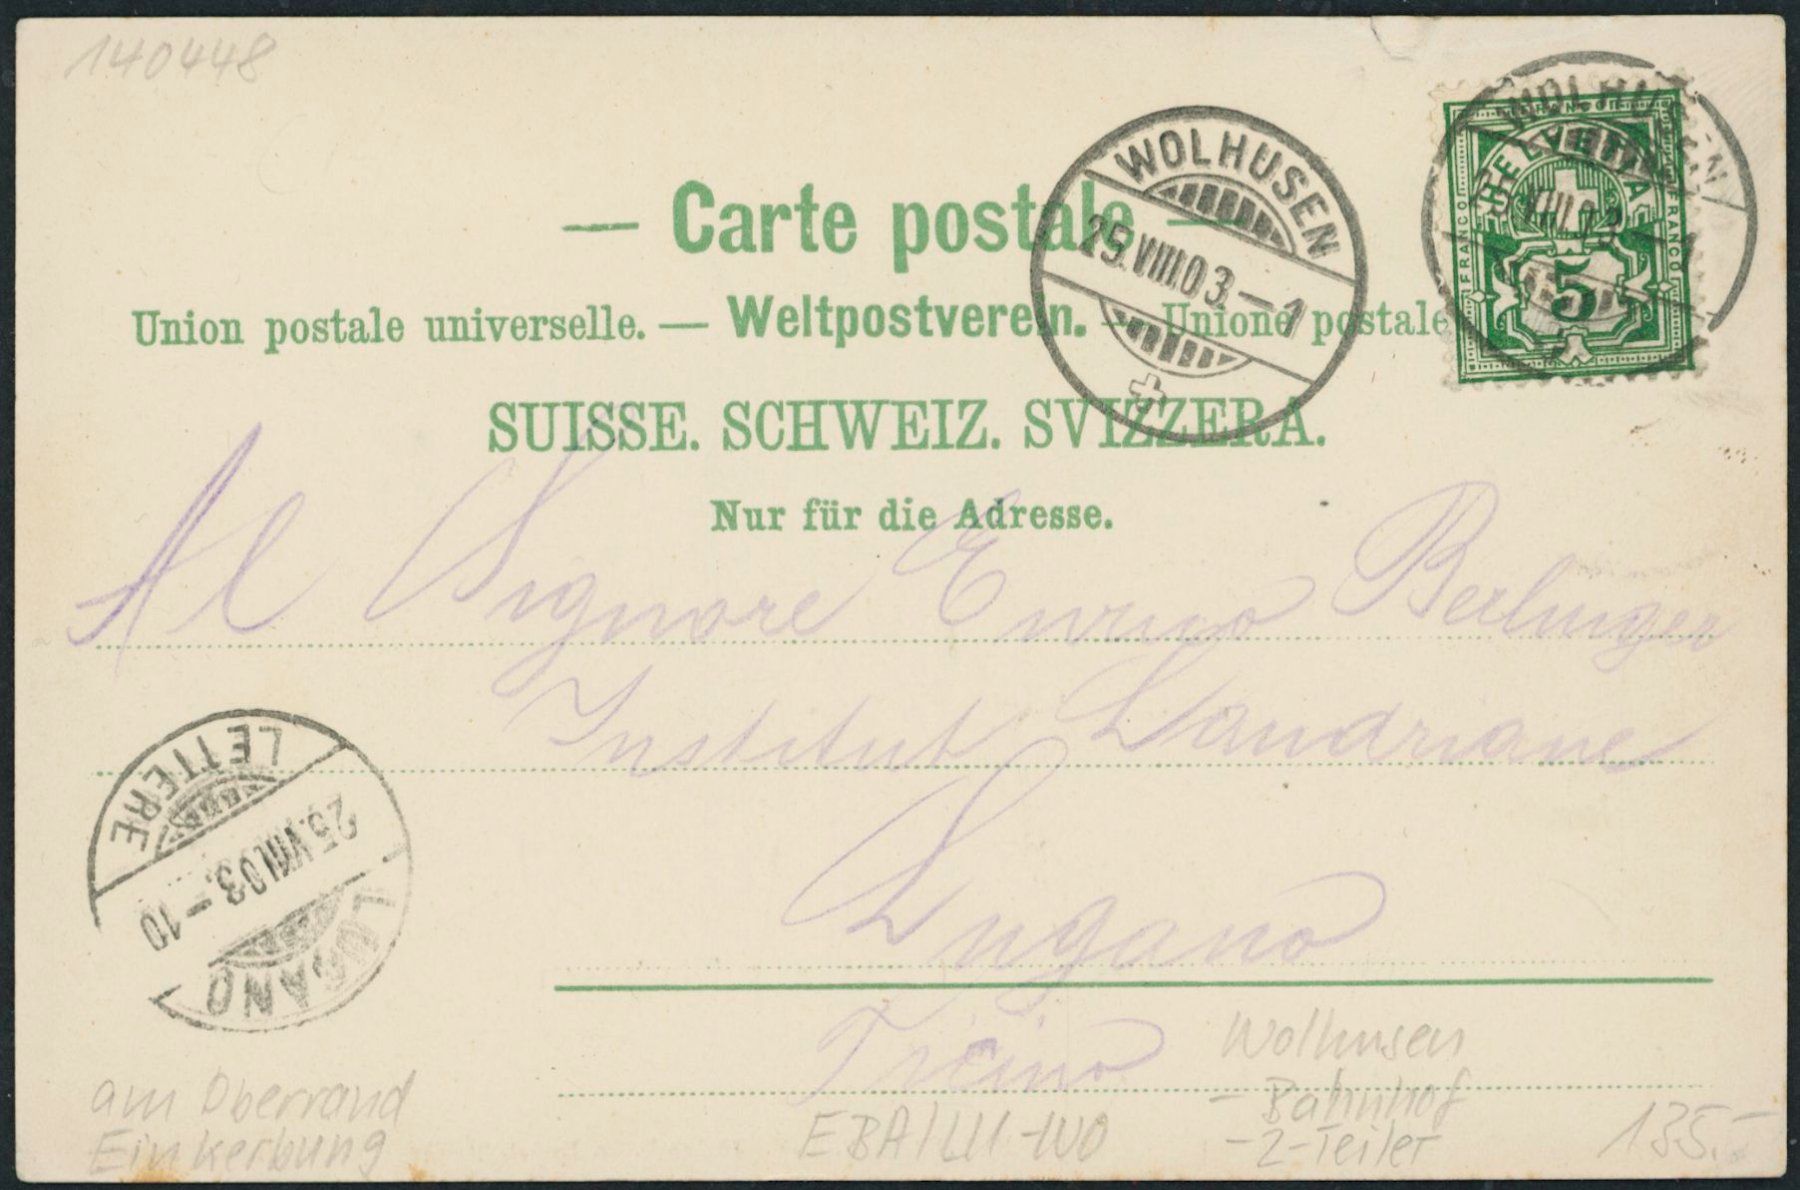 140448
— Carte postale —
Union postale universelle. — Weltpostverein. — Unione postale
SUISSE. SCHWEIZ. SVIZZERA.
Nur für die Adresse.
WOLHUSEN
25.VIII.03.–1
WOLHUSEN
VIII.03.–1
HELVETIA
FRANCO
FRANCO
5
Al Signore Enrico Berlinger
Institut Landriani
Lugano
Ticino
LETTERE
25.VIII.03.–10
LUGANO
am Oberrand
Einkerbung
EBA/LU-WO
Wolhusen
– Bahnhof
– 2-Teiler
135.–